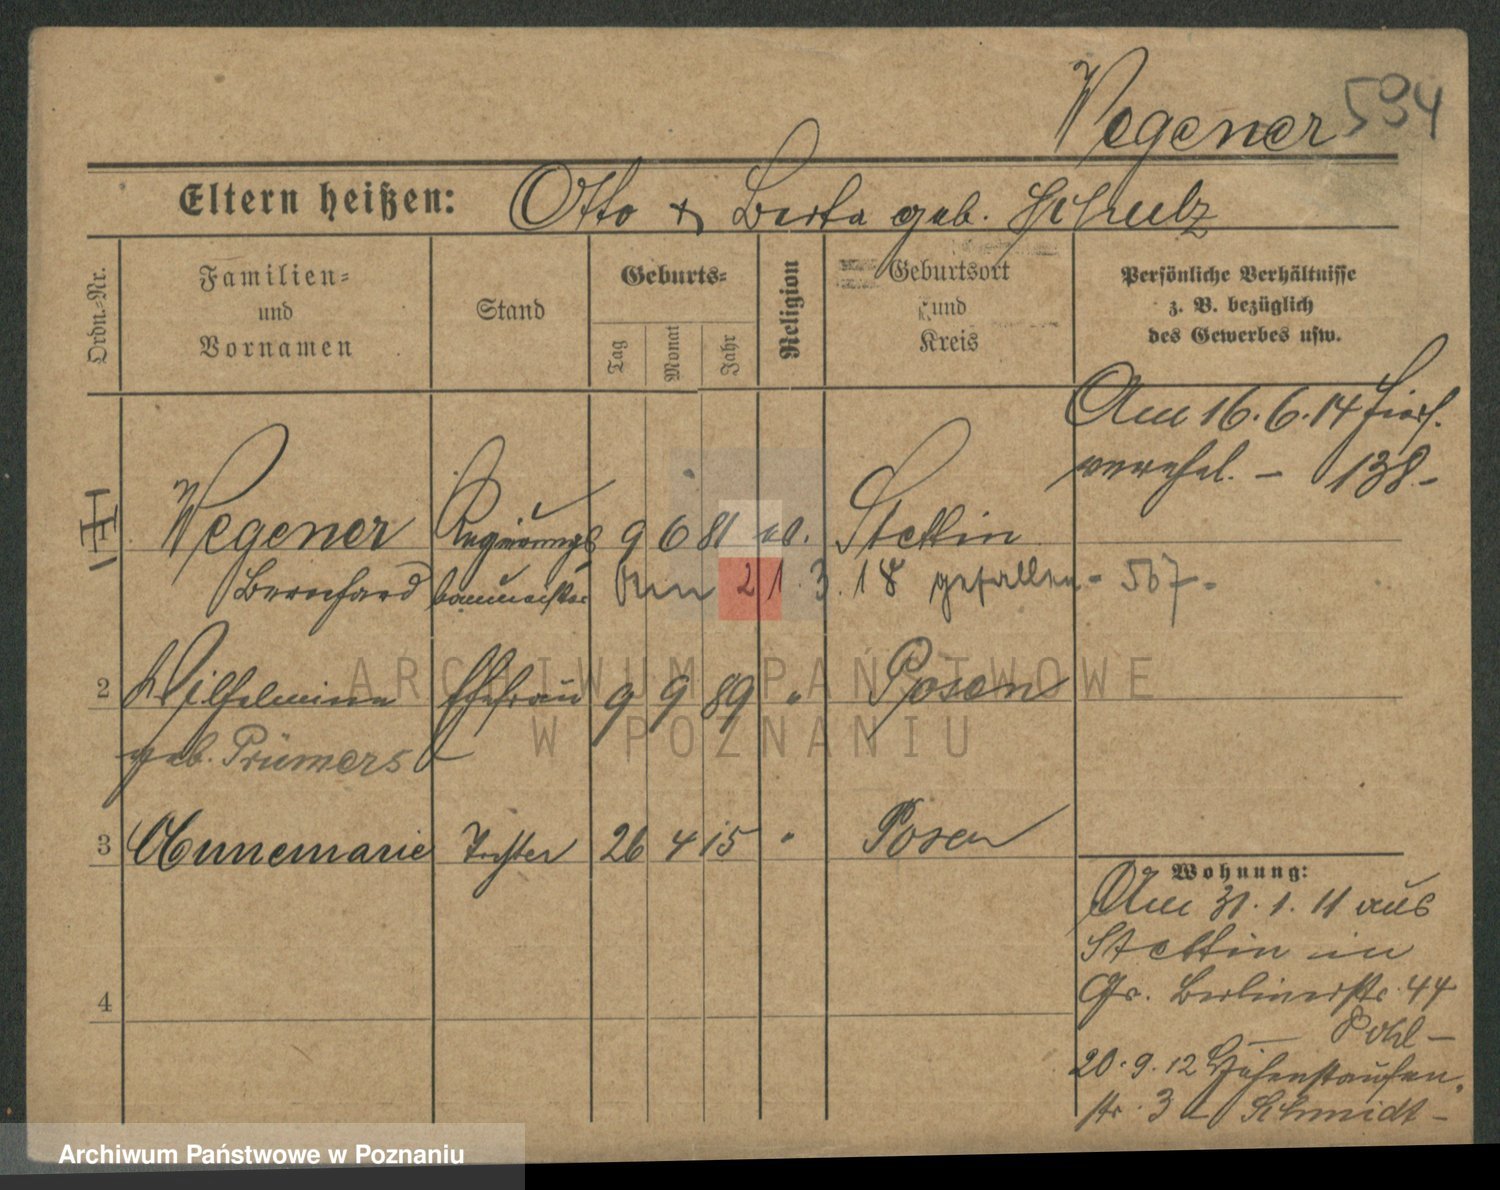 Wegener 594
Eltern heißen: Otto & Berta geb. Schulz
Ordn.-Nr.
Familien-
und
Vornamen
Stand
Geburts-
Tag
Monat
Jahr
Religion
Geburtsort
und
Kreis
Persönliche Verhältnisse
z. B. bezüglich
des Gewerbes usw.
Am 16.6.14 hier
verehel. - 138 -
Wegener Regierungs 9 6 81 ev. Stettin
Bernhard baumeister Am 21.3.18 gefallen - 567 -
2 Wilhelmine Ehefrau 9 9 89 " Posen
geb. Prümers
3 Annemarie Tochter 26 4 15 " Posen
4
Wohnung:
Am 31.1.11 aus
Stettin in
Gr. Berlinerstr. 44
Pohl -
20.9.12 Hohenstaufen
str. 3 - Schmidt -
ARCHIWUM PAŃSTWOWE
W POZNANIU
Archiwum Państwowe w Poznaniu